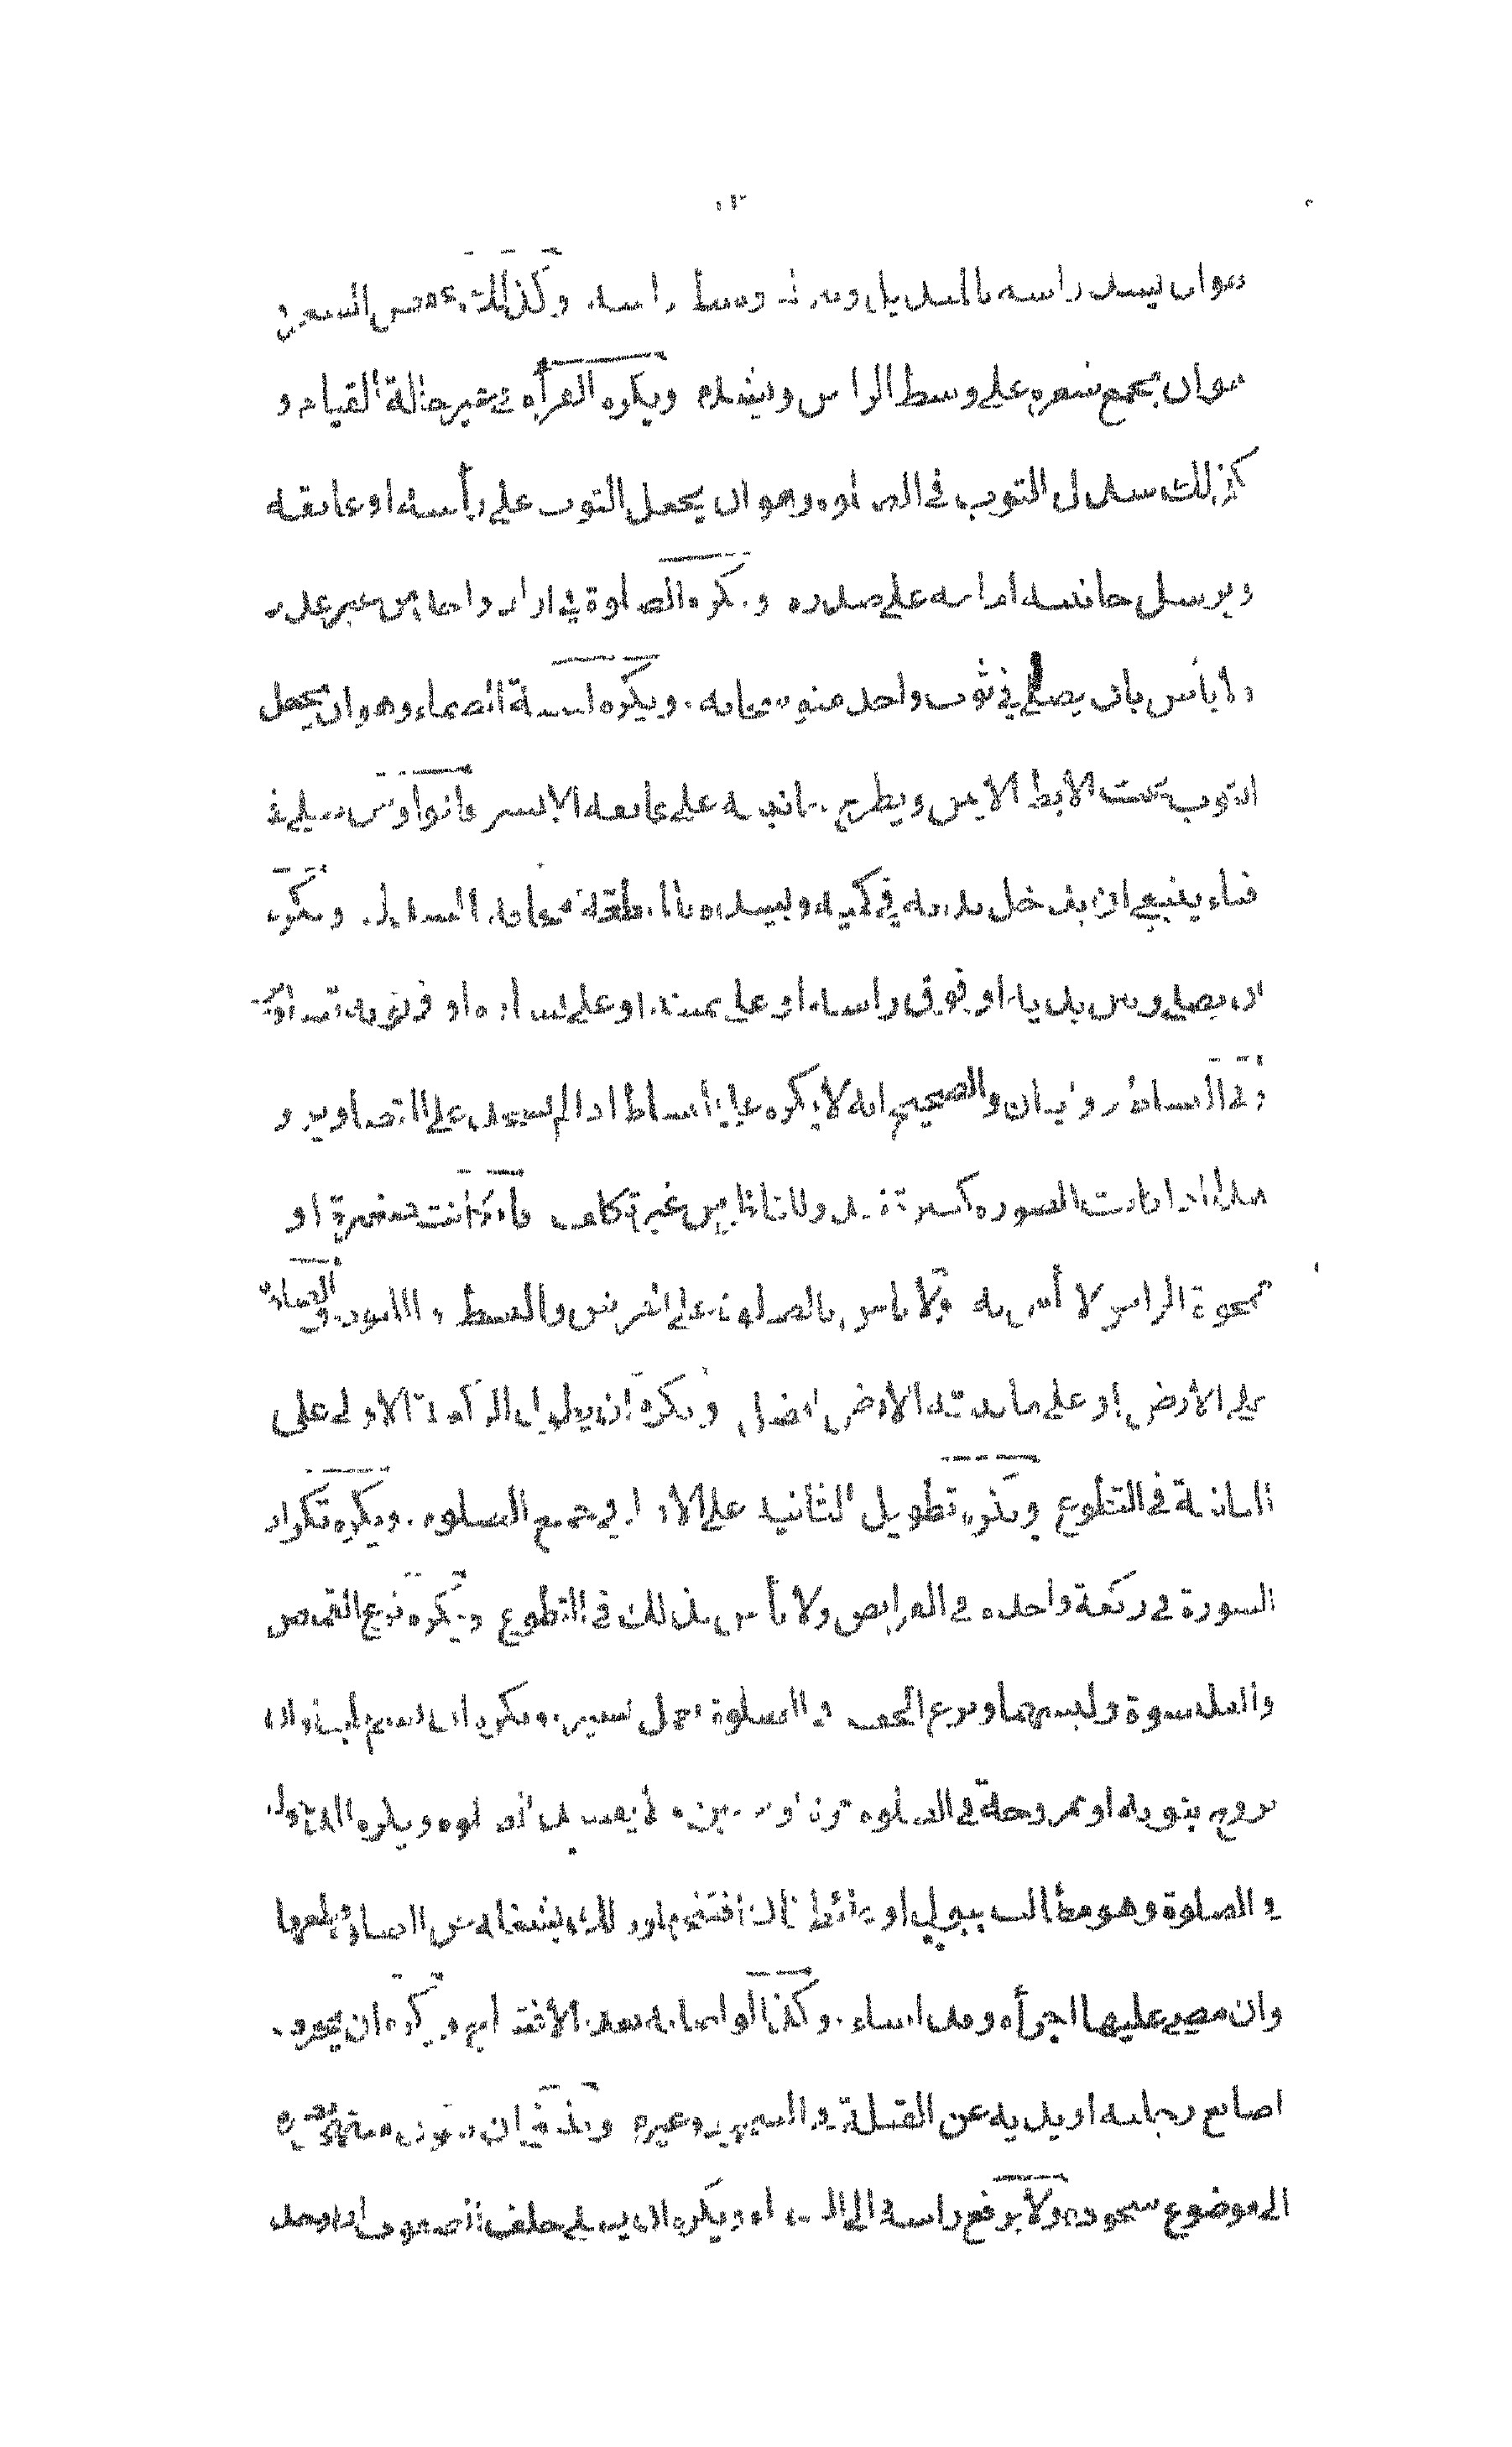 هوان يشد راسه بالمنديل ويترك وسط راسه. وكذلك عقص الشعر
هوان يجمع شعره على وسط الراس ويشده ويكره القرأة في غير حالة القيام و
كذلك سدل الثوب في الصلوه وهو ان يجعل الثوب على رأسه او عاتقه
ويرسل جانبيه امامه على صدره و يكره الصلوة في ازار واحد من غير عذر
ولا بأس بان يصلي في ثوب واحد متوشحا به. ويكره لبسة الصماء وهو ان يجعل
الثوب تحت الابط الايمن ويطرح جانبيه على عاتقه الايسر قالوا ومن صلى في
قباء ينبغي ان يدخل يديه في كميه ويشده بالمنطقة مخافة السدل. ويكره
ان يصلي وبين يديه او فوق راسه او على يمينه او على يساره او في ثوبه تصاوير
وفي البساط روايتان والصحيح انه لا يكره على البساط اذا لم يسجد على التصاوير و
هذا اذا كانت الصورة كبيرة تبدو للناظر من غير تكلف فان كانت صغيرة او
ممحوة الراس لا بأس به ولا باس بالصلوة على الفرش والبسط و اللبود والصلوة
على الارض او على ما تنبته الارض افضل ويكره ان يطول الركعة الاولى على
الثانية في التطوع ويكره تطويل الثانية على الاولى في جميع الصلوه. ويكره تكرار
السورة في ركعة واحده في الفرايض ولا بأس بذلك في التطوع ويكره نزع القميص
والقلنسوة ولبسهما ونزع الخف في الصلوة بعمل يسير. ويكره ان يشم طيبا وان
يروح بثوبه او بمروحة في الصلوه مرة او مرتين ويكره الدخول
في الصلوة وهو مطالب ببول او غائط فان افتتح وذلك يشغله عن الصلوة يقطعها
وان مضى عليها اجزأه وقد اساء. وكذا لو اصابه بعد الافتتاح ويكره ان يحرف
اصابع رجليه او يديه عن القبلة في السجود وغيره ويكره ان
الى موضع سجوده ولا يرفع راسه الى السماء ويكره ان يصلي خلف الصفوف